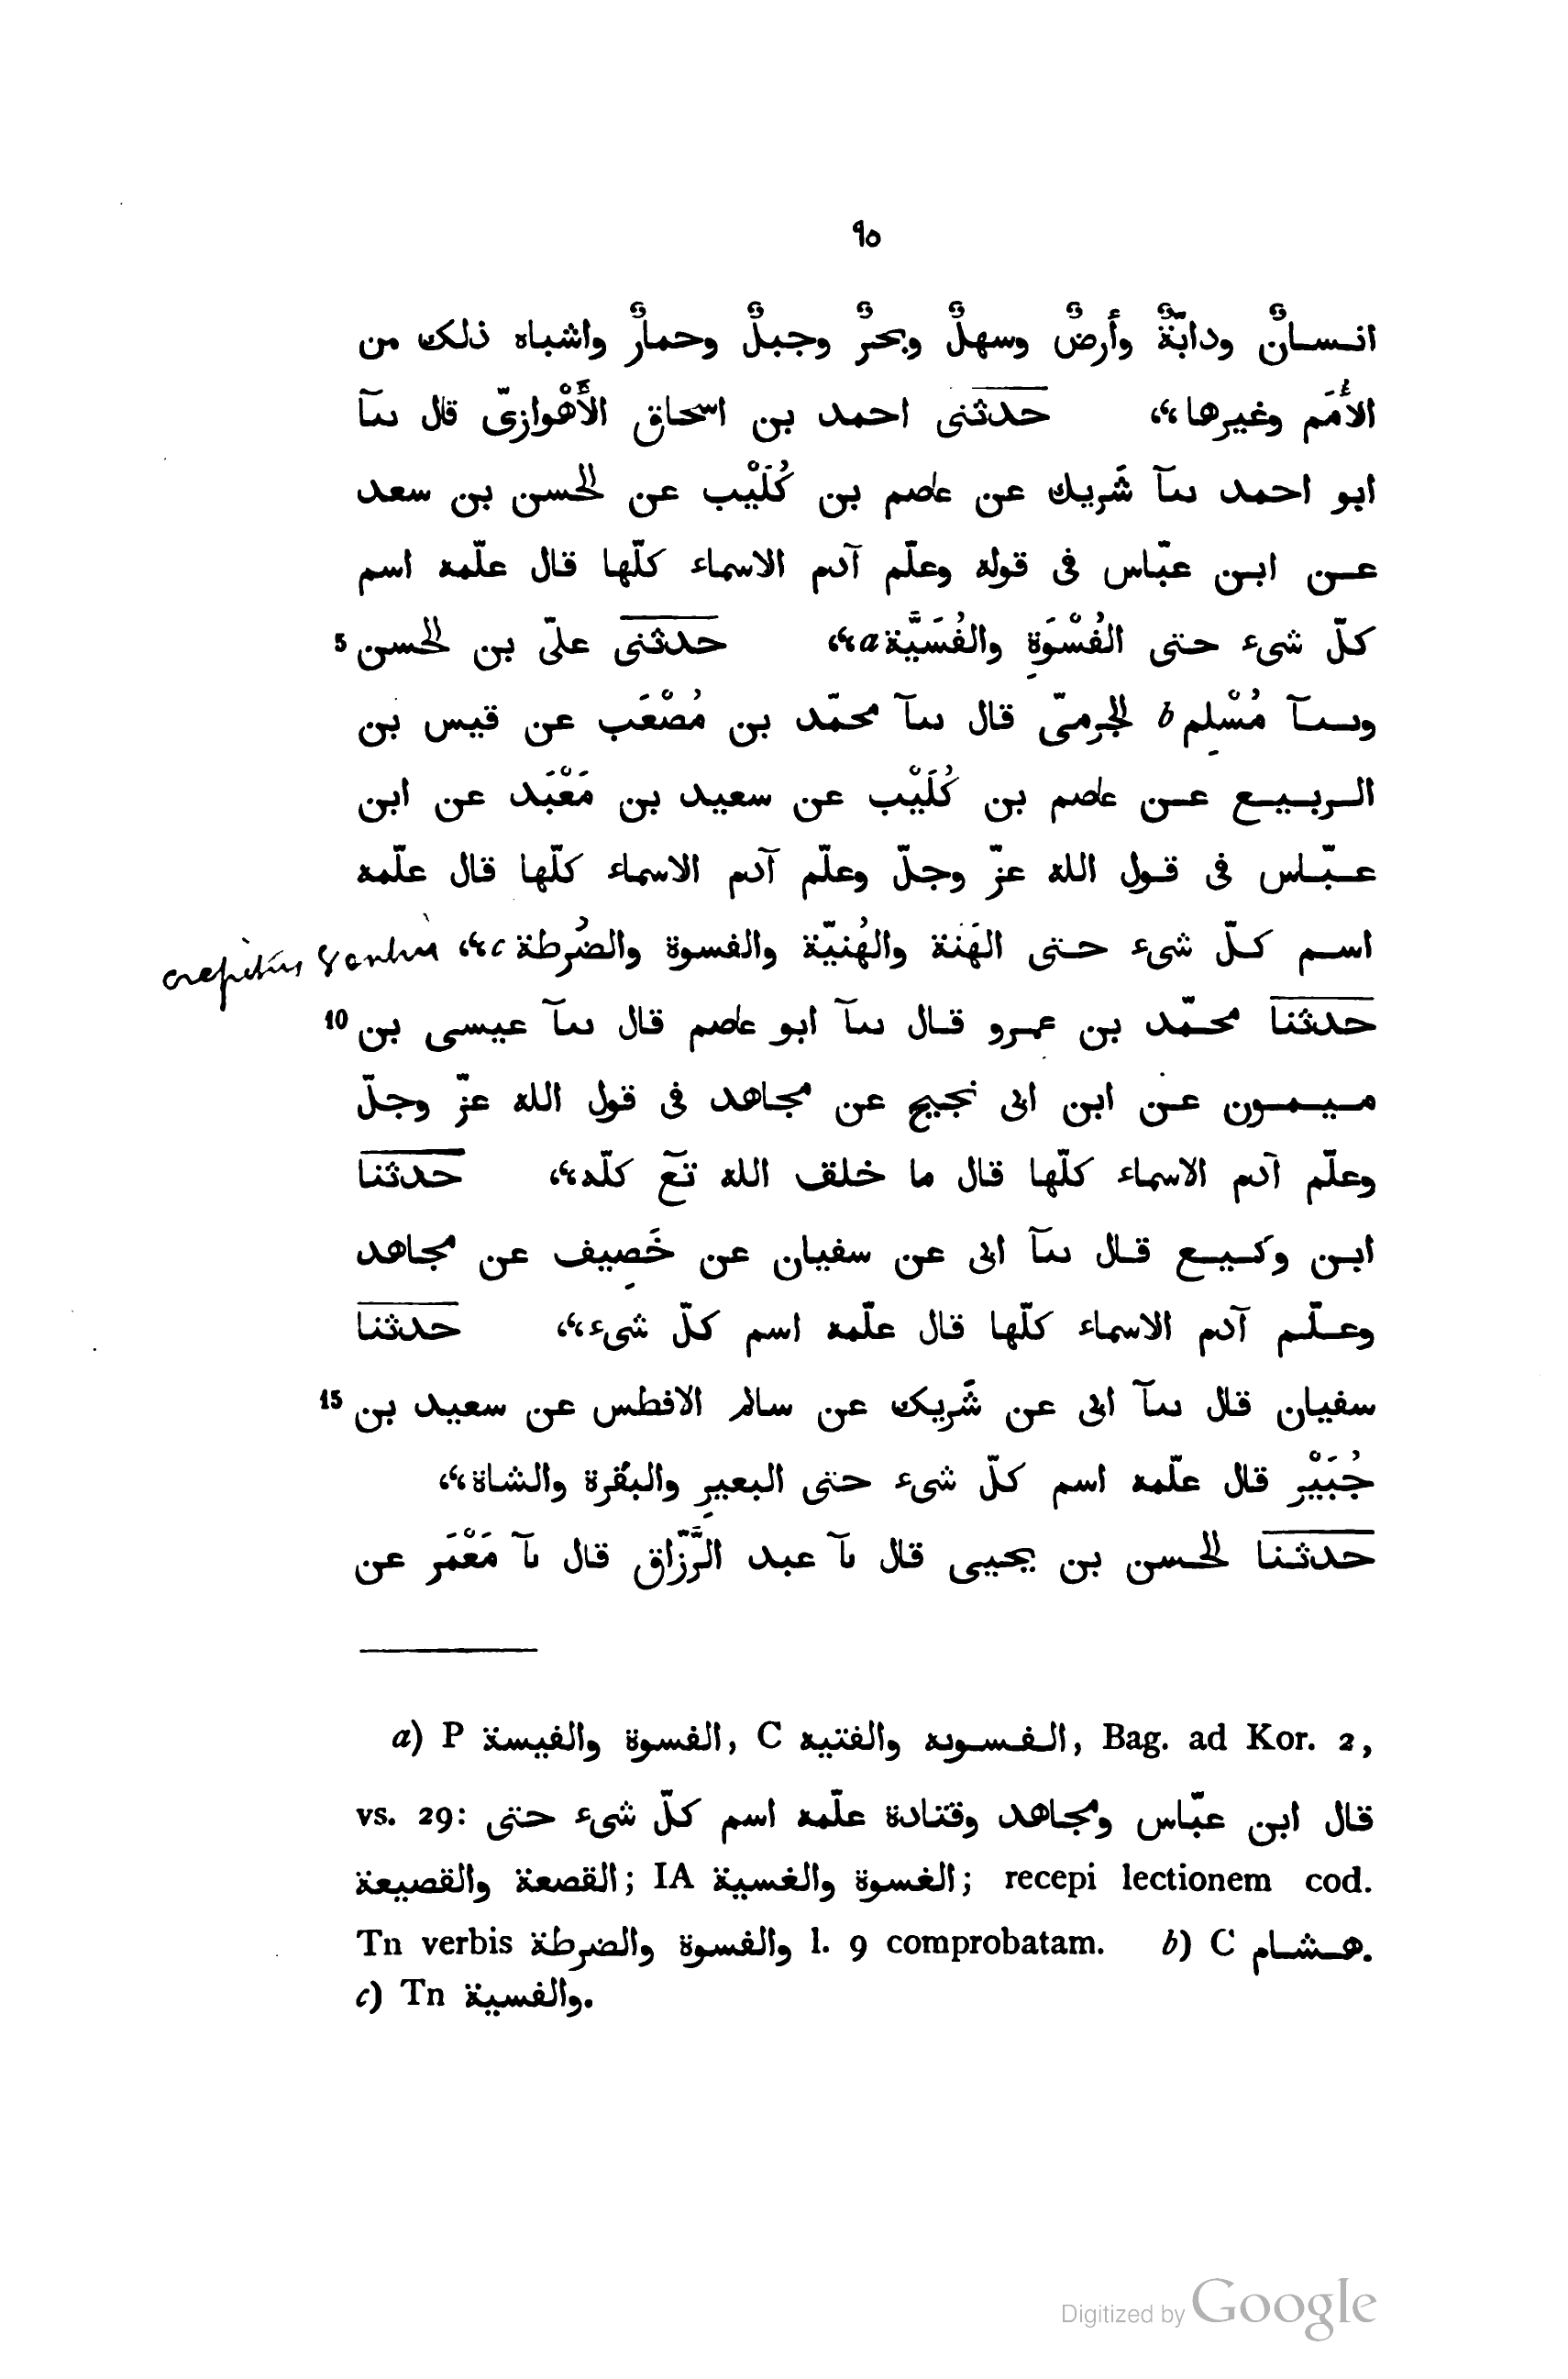 ٩٥
انسانٌ ودابّةٌ وأرضٌ وسهلٌ وبحرٌ وجبلٌ وحمارٌ واشباه ذلك من
الأُمَم وغيرها،، حدثنى احمد بن اسحاق الأَهْوازىّ قال ثنآ
ابو احمد ثنآ شَريك عن عاصم بن كُلَيْب عن الحسن بن سعد
عن ابن عبّاس فى قوله وعلّم آدم الاسماء كلّها قال علّمه اسم
كلّ شىء حتى الفُسْوَةِ والفُسَيَّة a،، حدثنى علىّ بن الحسن 5
وثنآ مُسْلِم b الجرمىّ قال ثنآ محمّد بن مُصْعَب عن قيس بن
الربيع عن عاصم بن كُلَيْب عن سعيد بن مَعْبَد عن ابن
عبّاس فى قول الله عزّ وجلّ وعلّم آدم الاسماء كلّها قال علّمه
اسم كلّ شىء حتى الهَنَة والهُنيّة والفسوة والضُرطة c،، crepitus
حدثنا محمّد بن عمرو قال ثنآ ابو عاصم قال ثنآ عيسى بن 10
ميمون عن ابن ابى نجيح عن مجاهد فى قول الله عزّ وجلّ
وعلّم آدم الاسماء كلّها قال ما خلق الله تعٓ كلّه،، حدثنا
ابن وكيع قال ثنآ ابى عن سفيان عن خَصِيف عن مجاهد
وعلّم آدم الاسماء كلّها قال علّمه اسم كلّ شىء،، حدثنا
سفيان قال ثنآ ابى عن شَريك عن سالم الافطس عن سعيد بن 15
جُبَيْر قال علّمه اسم كلّ شىء حتى البعيرِ والبقرة والشاة،،
حدثنا الحسن بن يحيى قال نآ عبد الرَّزّاق قال نآ مَعْمَر عن
a) P الفسوة والفيسة, C الفسوىه والفتيه, Bag. ad Kor. 2,
vs. 29: قال ابن عبّاس ومجاهد وقتادة علّمه اسم كلّ شىء حتى
القصعة والقصيعة; IA الغسوة والغسية; recepi lectionem cod.
Tn verbis والفسوة والضرطة l. 9 comprobatam. b) C هشام.
c) Tn والفسية.
Digitized by Google